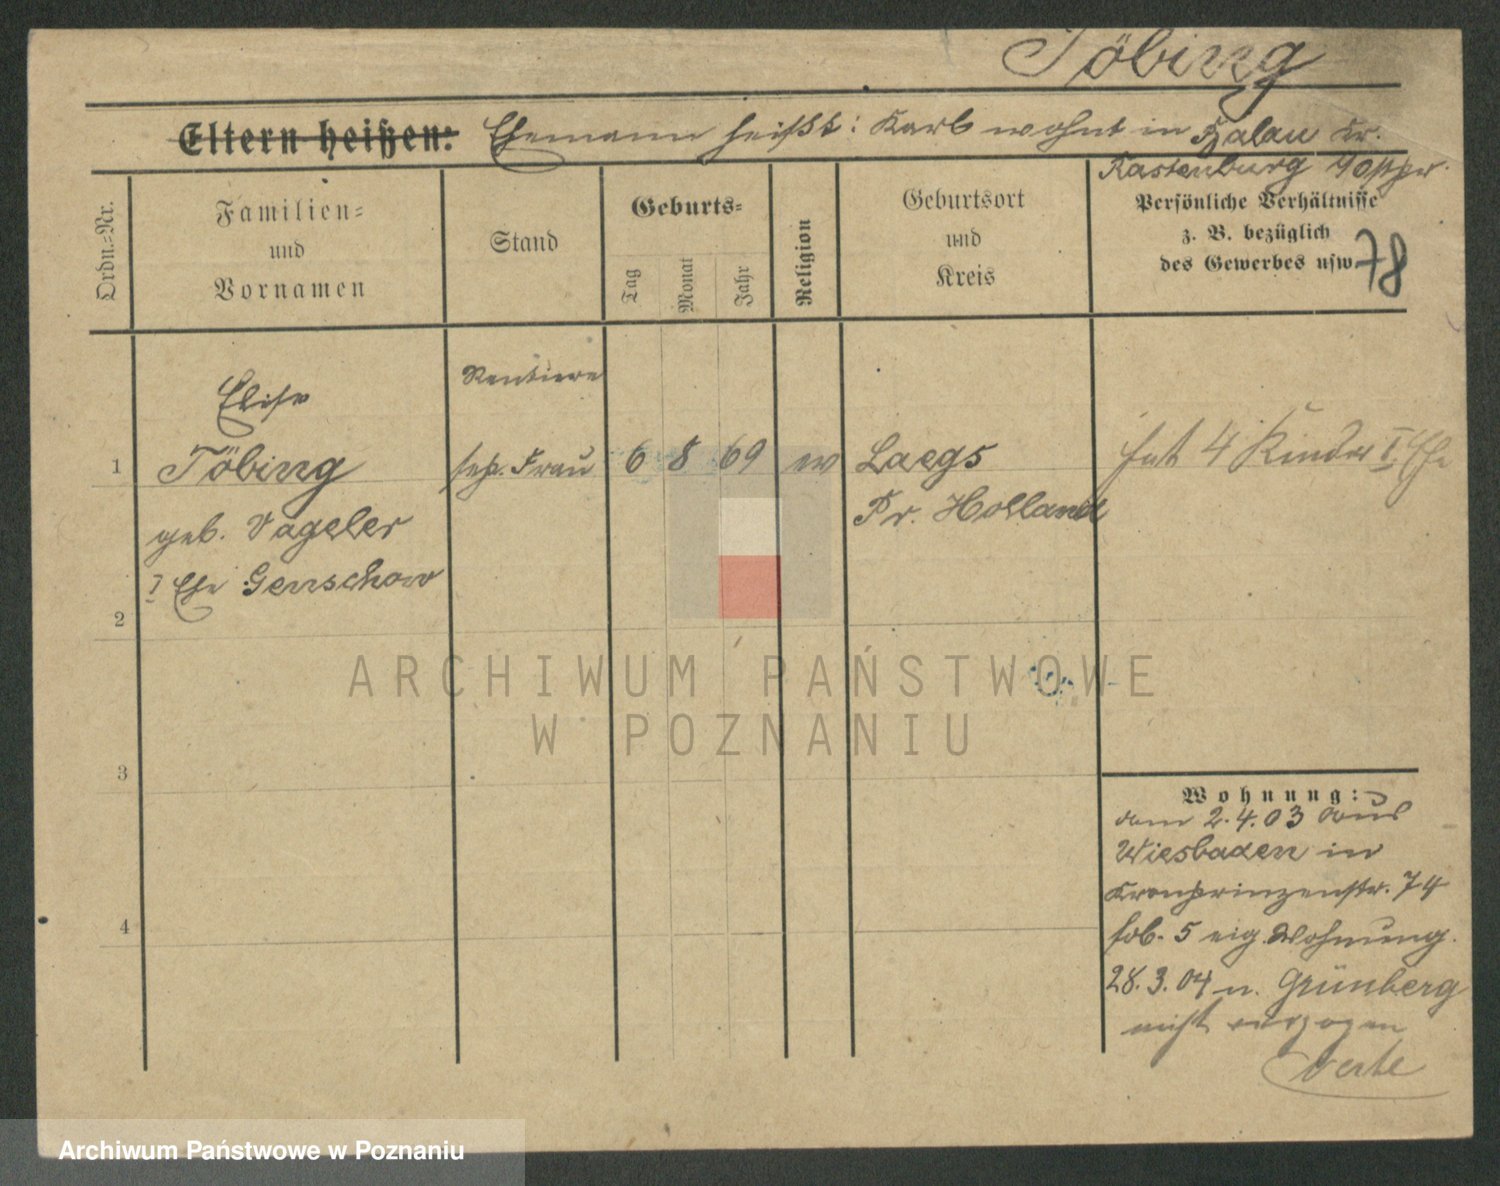 Töbing
Eltern heißen: Ehemann heißt: Karl wohnt in Balau Kr.
Rastenburg /Ostpr.
Ordn.=Nr.
Familien=
und
Vornamen
Stand
Geburts=
Tag
Monat
Jahr
Religion
Geburtsort
und
Kreis
Persönliche Verhältnisse
z. B. bezüglich
des Gewerbes usw.
78
Elise
Rentiere
1 Töbing sep. Frau 6 8 69 ev Laegs hat 4 Kinder I. Ehe
geb. Vageler Pr. Holland
I Ehe Genschow
2
3
4
Wohnung:
vom 2.4.03 aus
Wiesbaden in
Kronprinzenstr. 74
hob. 5 eig. Wohnung.
28.3.04 n. Grünberg
nicht verzogen
ARCHIWUM PAŃSTWOWE
W POZNANIU
Archiwum Państwowe w Poznaniu